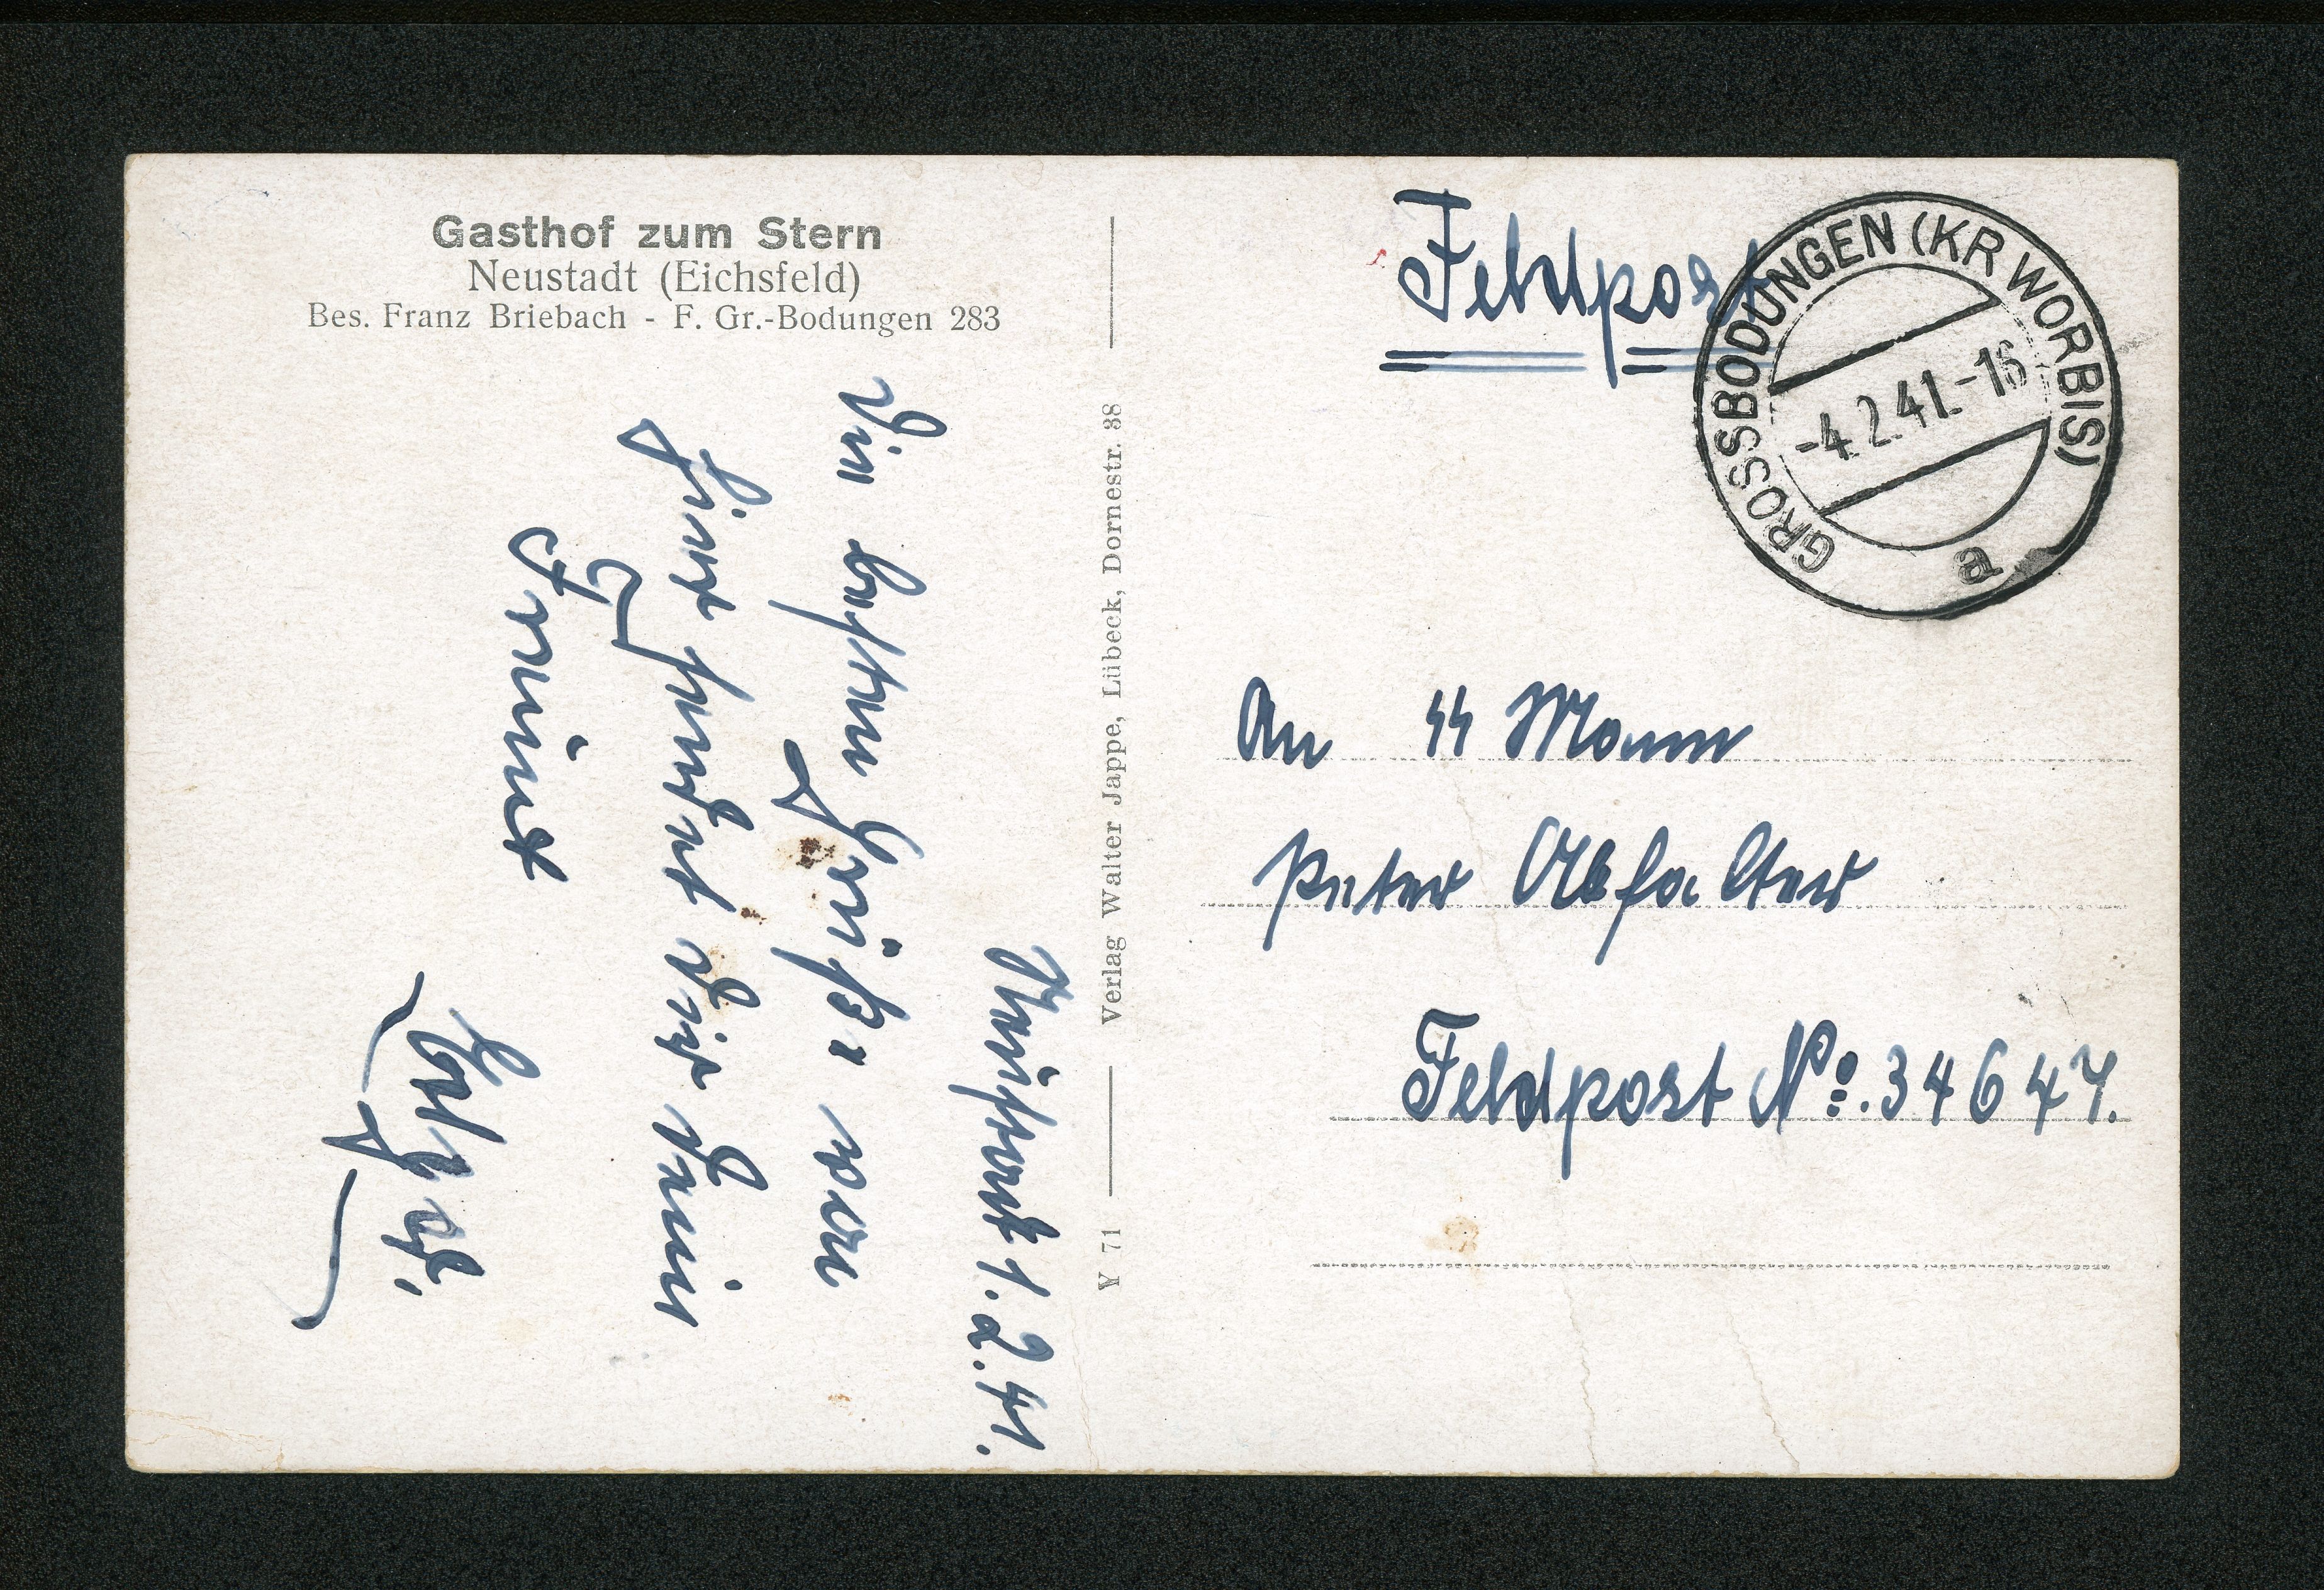 Gasthof zum Stern
Neustadt (Eichsfeld)
Bes. Franz Briebach - F. Gr.-Bodungen 283
Neustadt 1.2.41.
Die besten Grüße von
hier sendet Dir Dein
Freund
Verlag Walter Jappe, Lübeck, Dornestr. 38
Y 71
Feldpost
GROSSBODUNGEN (KR WORBIS)
-4.2.41.-16
a
An SS Mann
Peter Abfalter
Feldpost No. 34647.